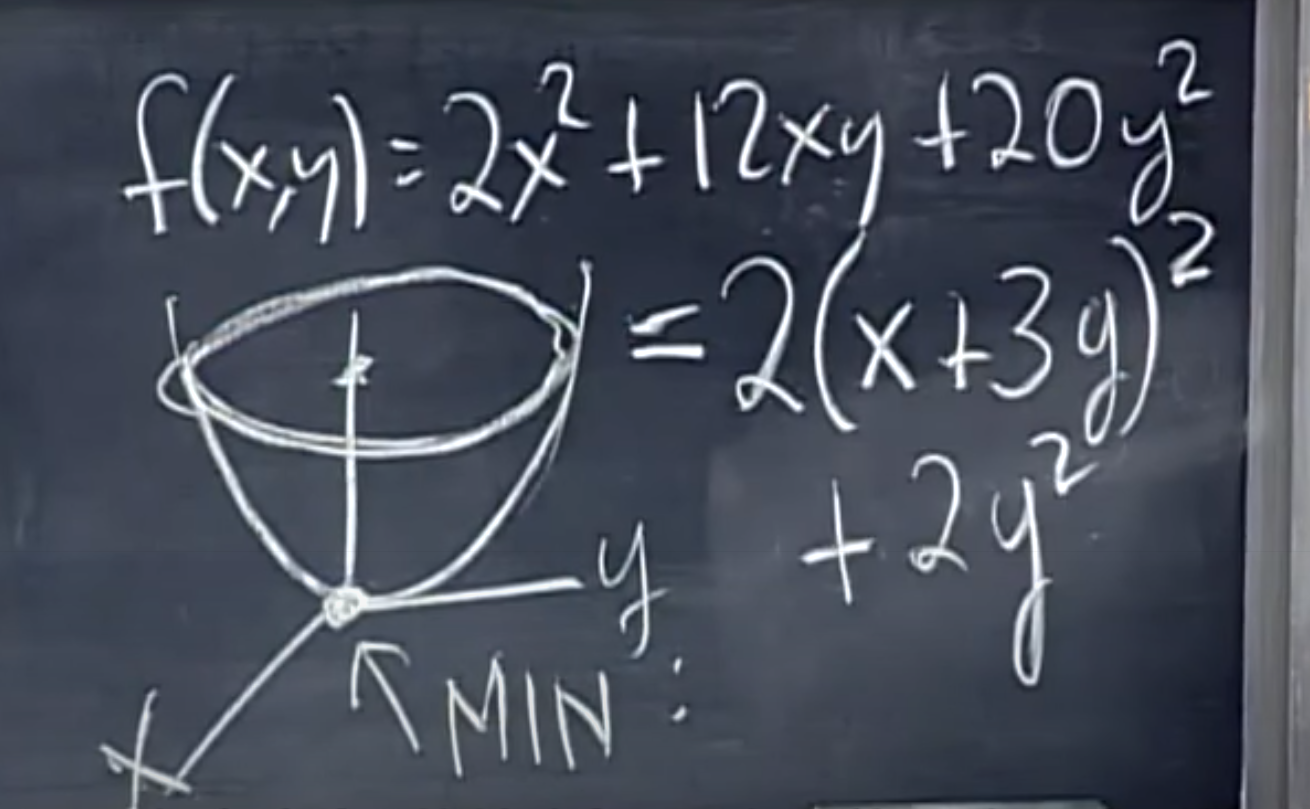 f(x,y)=2x²+12xy+20y²
=2(x+3y)²
+2y²
y
MIN:
x